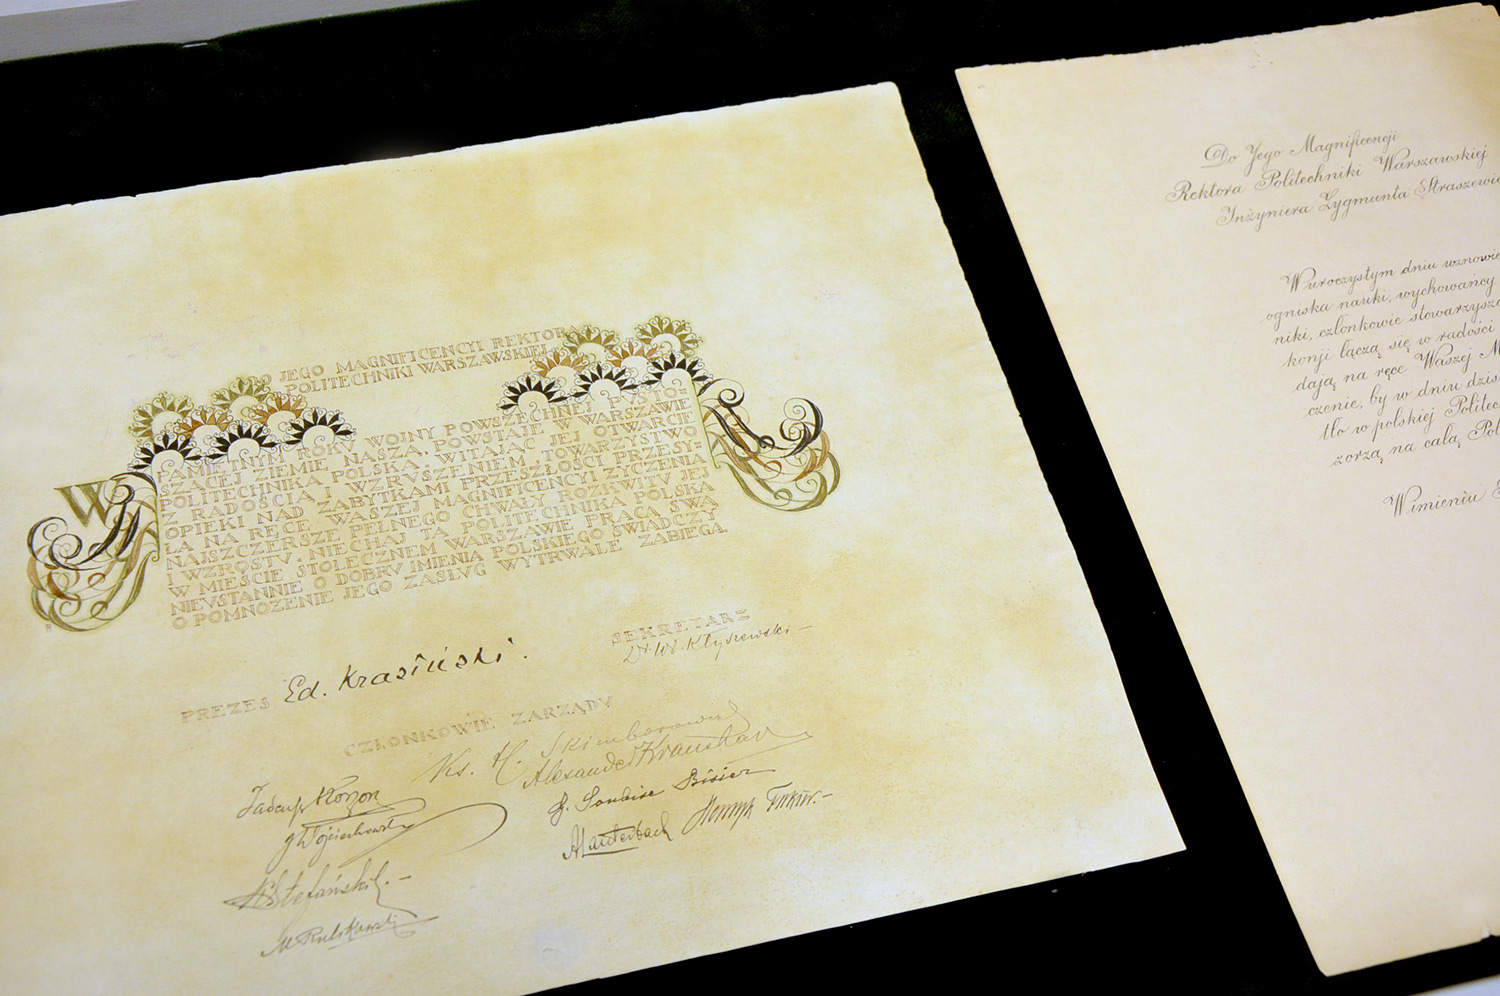 DO JEGO MAGNIFICENCYI REKTORA
POLITECHNIKI WARSZAWSKIEJ
W PAMIĘTNYM ROKV WOJNY POWSZECHNEJ PVSTO-
SZĄCEJ ZIEMIE NASZĄ, POWSTAJE W WARSZAWIE
POLITECHNIKA POLSKA. WITAJĄC JEJ OTWARCIE
Z RADOŚCIĄ I WZRVSZENIEM TOWARZYSTWO
OPIEKI NAD ZABYTKAMI PRZESZŁOŚCI PRZESY-
ŁA NA RĘCE WASZEJ MAGNIFICENCYI ŻYCZENIA
NAJSZCZERSZE PEŁNEGO CHWAŁY ROZKWITV JEJ
I WZROSTV. NIECHAJ TA POLITECHNIKA POLSKA
W MIEŚCIE STOŁECZNEM WARSZAWIE PRACĄ SWĄ
NIEVSTANNIE O DOBRV IMIENIA POLSKIEGO ŚWIADCZY
O POMNOŻENIE JEGO ZASŁVG WYTRWALE ZABIEGA.
PREZES Ed. Krasiński.
SEKRETARZ
Dr. Wł. Kłyszewski
CZŁONKOWIE ZARZĄDV
Ks. H. Skimborowicz
Tadeusz Korzon
Alexander Kraushar
J Wojciechowski
Bisier
Lauterbach Henryk
Stefański
Do Jego Magnificencji
Rektora Politechniki Warszawskiej
Inżyniera Zygmunta Straszewic
W uroczystym dniu wznowie
ogniska nauki, wychowańcy
niki, członkowie stowarzysze
konji łączą się w radości
dają na ręce Waszej M
czenie, by w dniu dzis
tło w polskiej Politec
zorzą na całą Pol
W imieniu